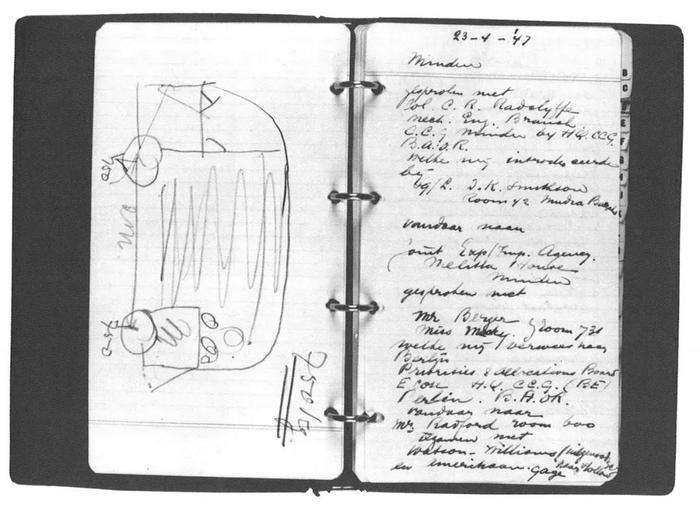 750
750
750 kg
23-4-'47
Minden
gesproken met
Col. C. R. Radclyffe
Mech. Eng. Branch
C.C.G Minden by HQ. CCG.
B.A.O.R.
welke mij introduceerde
bij
D.K.
Room 42
vandaar naar
Joint Exp/Imp. Agency.
Melitta House
Minden
gesproken met
Mr Berger
Miss } Room 731
welke mij verwees naar
Berlijn
Priorities & Allocations Board
Econ H.Q. C.C.G. (BE)
Berlin. B.A.O.R.
vandaar naar
Mr. Radford room 600
tezamen met
Watson-Williams
en Amerikaan. Gage
B
C
E
F